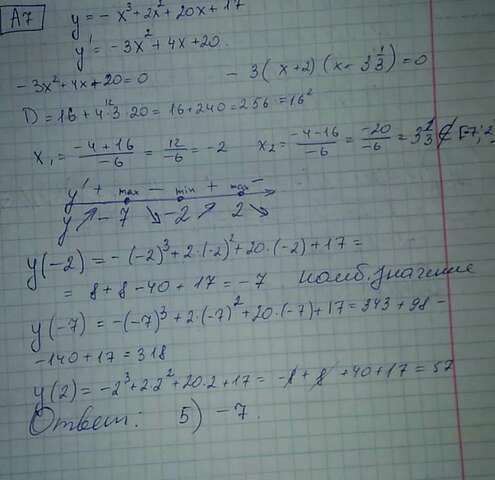 A7
y = - x³ + 2x² + 20x + 17
y' = -3x² + 4x + 20.
-3x² + 4x + 20 = 0    - 3(x+2)(x - 3 1/3) = 0
D = 16 + 4·3·20 = 16 + 240 = 256 = 16²
x₁ = (-4+16)/-6 = 12/-6 = -2    x₂ = (-4-16)/-6 = -20/-6 = 3 1/3 ∉ [-7; 2
y' + max - min + max -
y ↗ -7 ↘ -2 ↗ 2 ↘
y(-2) = -(-2)³ + 2·(-2)² + 20·(-2) + 17 =
= 8 + 8 - 40 + 17 = -7 наиб. значение
y(-7) = -(-7)³ + 2·(-7)² + 20·(-7) + 17 = 343 + 98 -
-140 + 17 = 318
y(2) = -2³ + 2·2² + 20·2 + 17 = -8 + 8 + 40 + 17 = 57
Ответ: 5) -7.